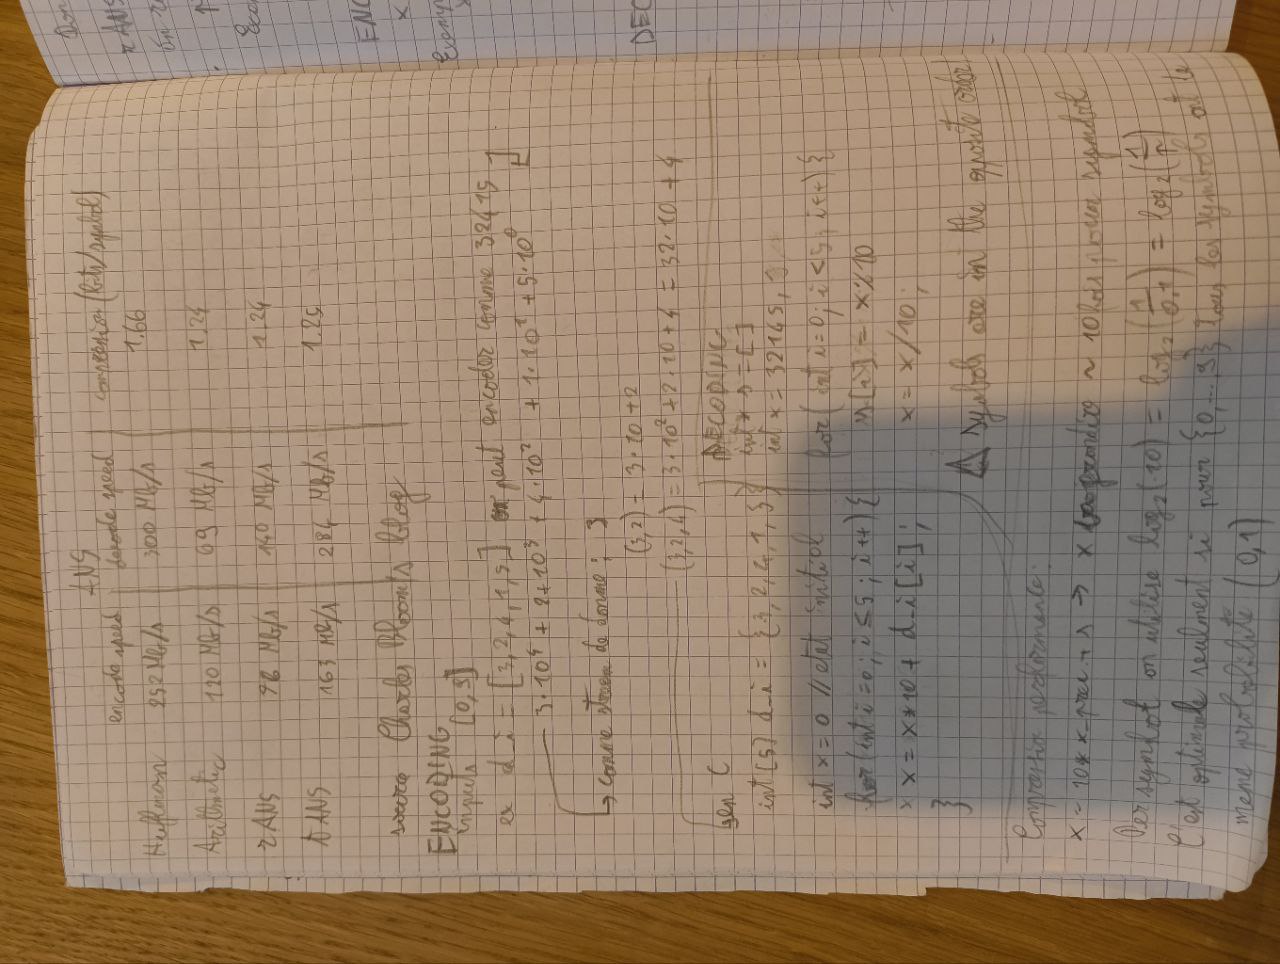 ANS
encode speed decode speed compression (bits/symbol)
Huffman 252 Mb/s 300 Mb/s 1.66
Arithmetic 120 Mb/s 69 Mb/s 1.24
rANS 76 Mb/s 140 Mb/s 1.24
tANS 163 Mb/s 284 Mb/s 1.25
source Charles Bloom's blog
ENCODING
inputs [0,9]
ex d_i = [3,2,4,1,5] on peut encoder comme 32415
3·10⁴ + 2*10³ + 4·10² + 1·10¹ + 5·10⁰
→ comme stream de donné ; 3
(3,2) = 3·10+2
(3,2,4) = 3·10² + 2·10 + 4 = 32·10 + 4
en C
int[5] d_i = {3,2,4,1,5}
int x = 0 // état initial
for(int i=0; i≤5; i++){
x = x*10 + d_i[i];
}
DECODING
int* s = []
int x = 32145,
for( int i=0; i<5; i++){
s[i] = x%10
x = x/10;
symbols are in the oposite order
Compression performance:
x = 10* x_prec + s → x ~ 10 fois pour symbol
Per symbol on utilise log₂(10) = log₂(1/0.1) = log₂(1/P)
C'est optimale seulment si pour {0,...,9} les symbols ont la
meme probabilité (0,1)